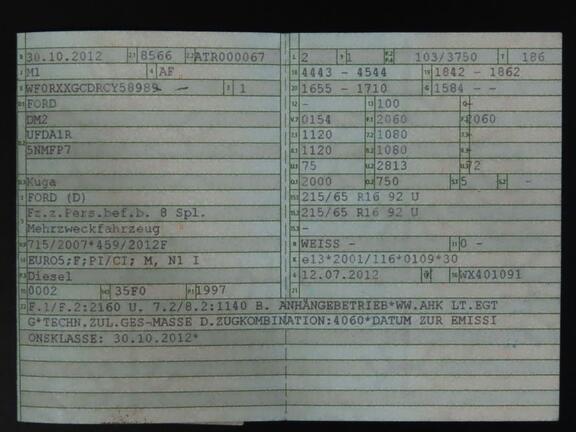 30.10.2012 8566 ATR000067
M1 AF
WF0RXXGCDRCY58989 - 1
FORD
DM2
UFDA1R
5NMFP7
Kuga
FORD (D)
Fz.z.Pers.bef.b. 8 Spl.
Mehrzweckfahrzeug
715/2007*459/2012F
EURO5;F;PI/CI; M, N1 I
Diesel
0002 35F0 1997
2 1 103/3750 186
4443 - 4544 1842 - 1862
1655 - 1710 1584 - -
- 100 -
0154 2060 2060
1120 1080 -
1120 1080 -
75 2813 72
2000 750 5 -
215/65 R16 92 U
215/65 R16 92 U
-
WEISS - 0 -
e13*2001/116*0109*30
12.07.2012 K WX401091
F.1/F.2:2160 U. 7.2/8.2:1140 B. ANHÄNGEBETRIEB*WW.AHK LT.EGT
G*TECHN.ZUL.GES-MASSE D.ZUGKOMBINATION:4060*DATUM ZUR EMISSI
ONSKLASSE: 30.10.2012*